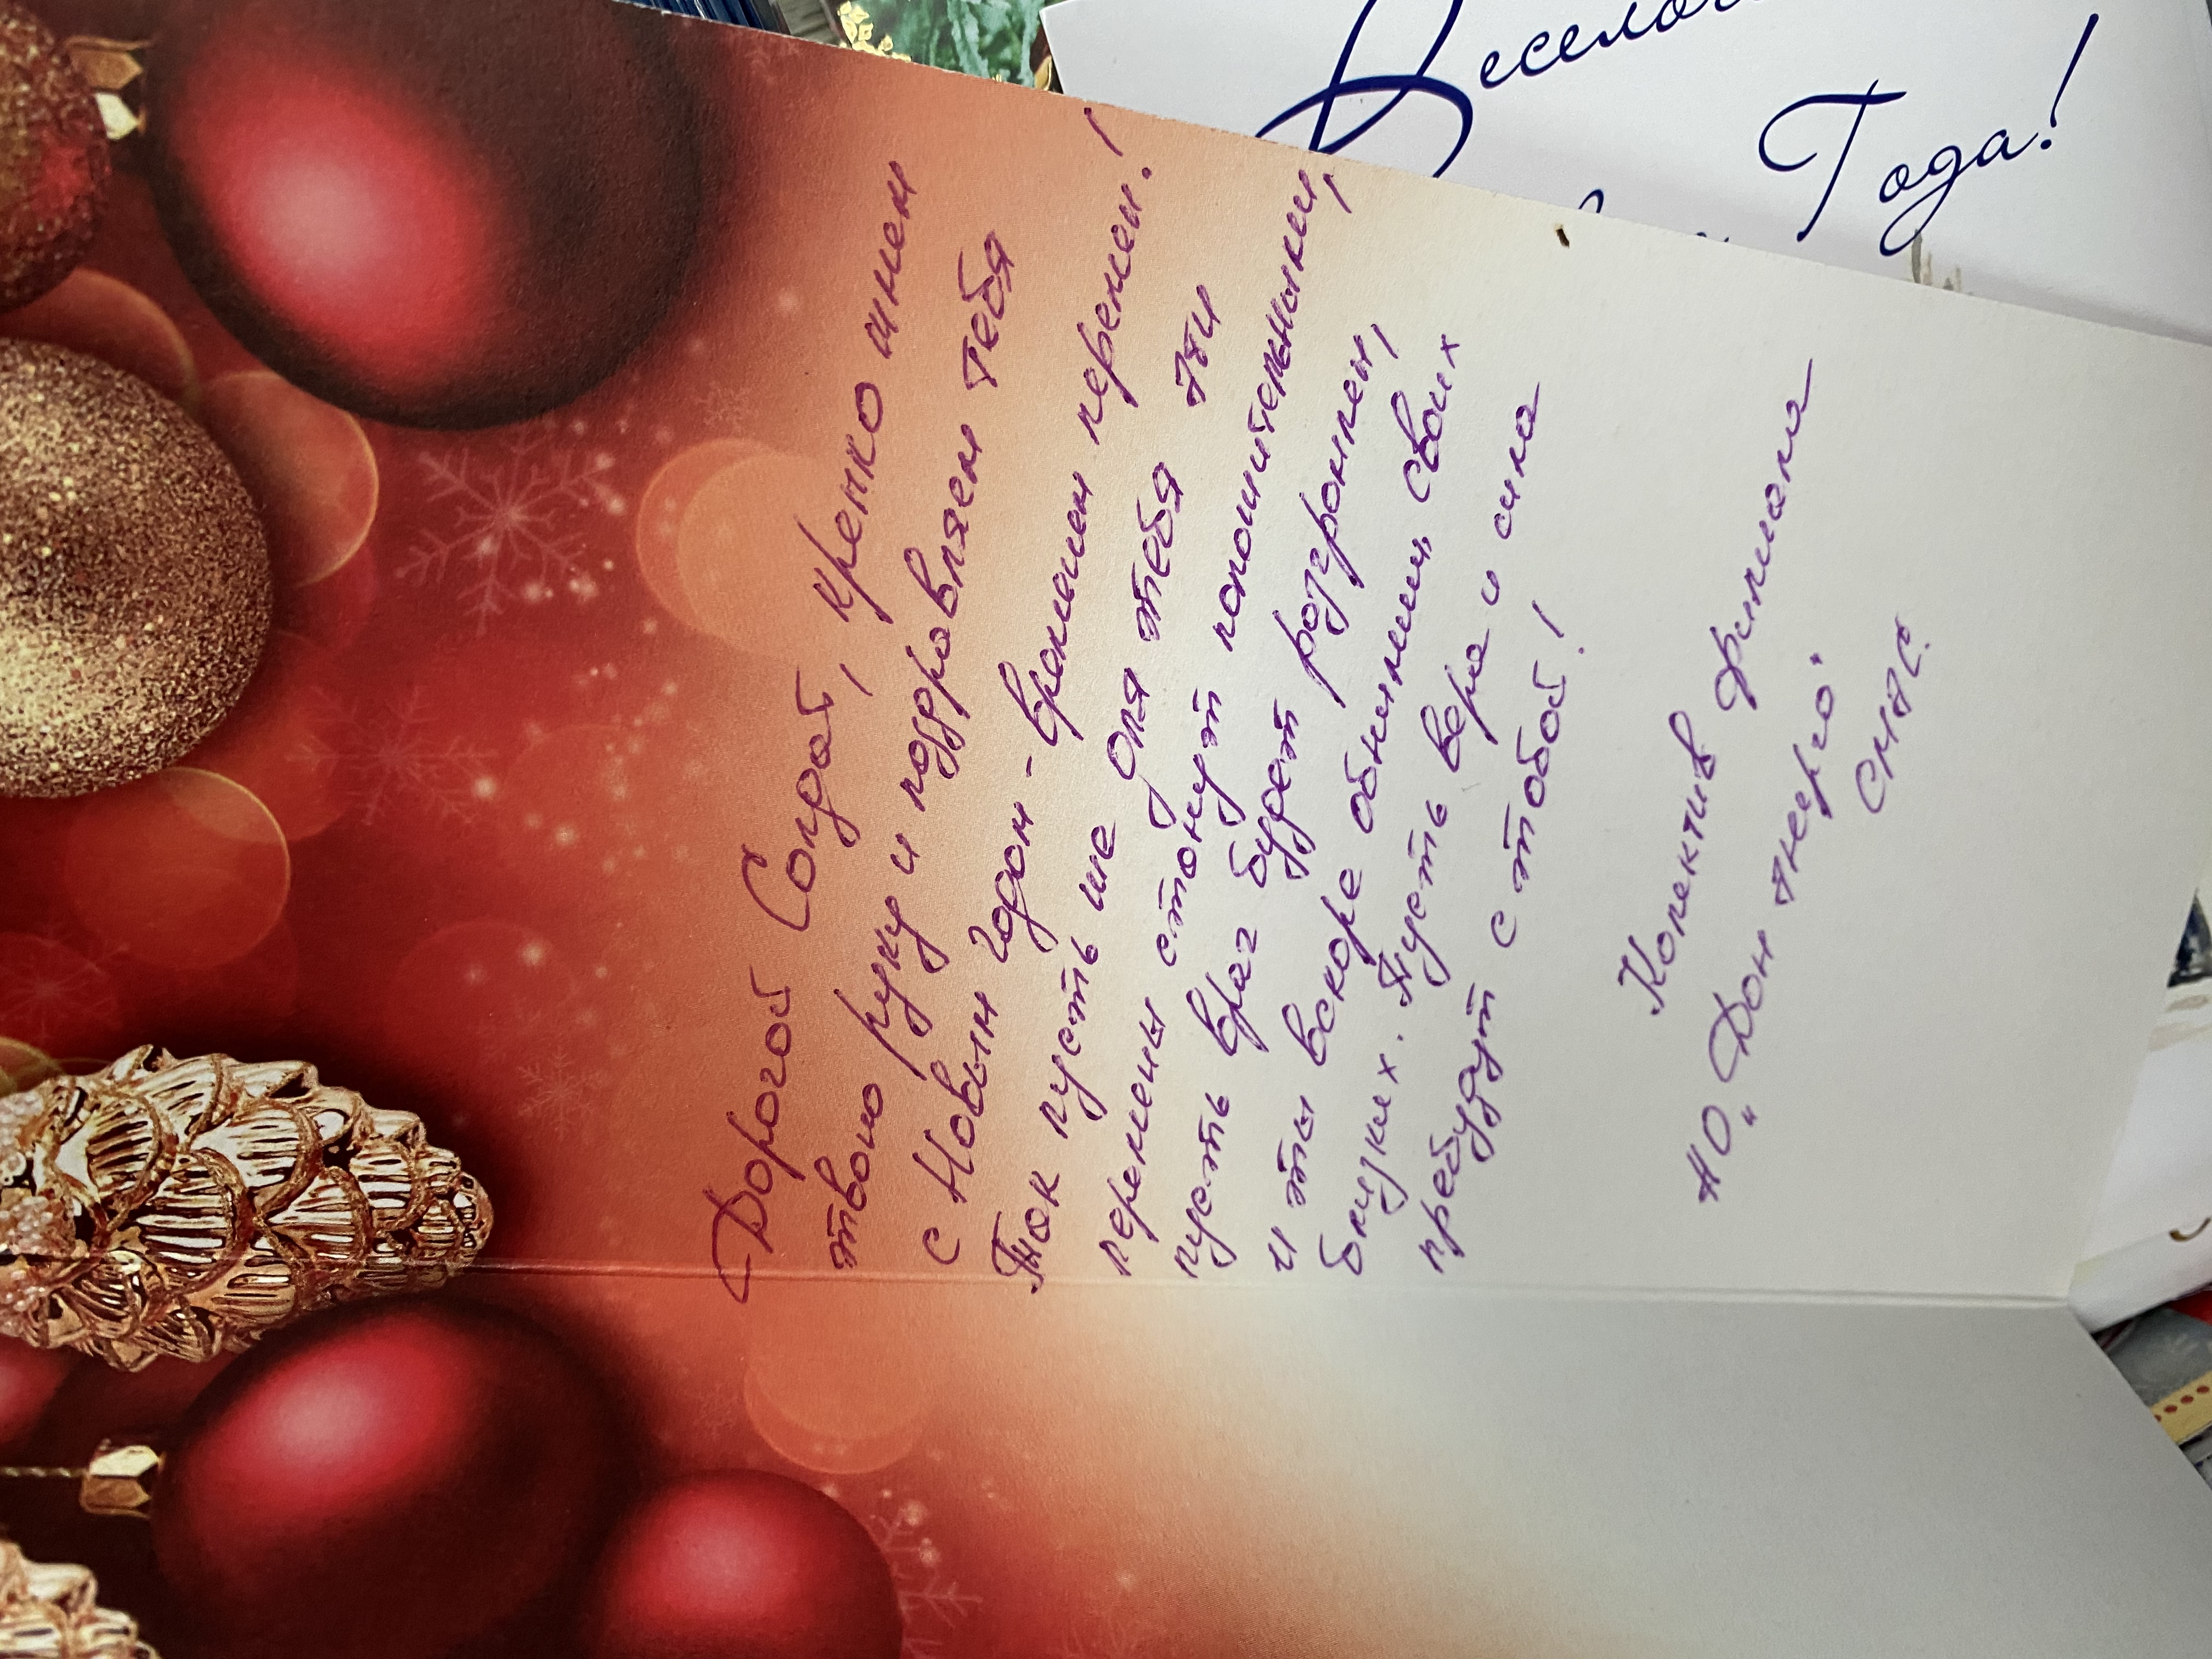 Веселого
Года!
Дорогой Солдат, крепко жмем
твою руку и поздравляем тебя
с Новым годом - временем перемен!
Так пусть же для тебя эти
перемены станут положительными,
пусть враг будет разгромлен,
и ты вскоре обнимешь своих
близких. Пусть вера и сила
пребудут с тобой!
Колектив филиала
АО "Дон энерго"
СМЭС.